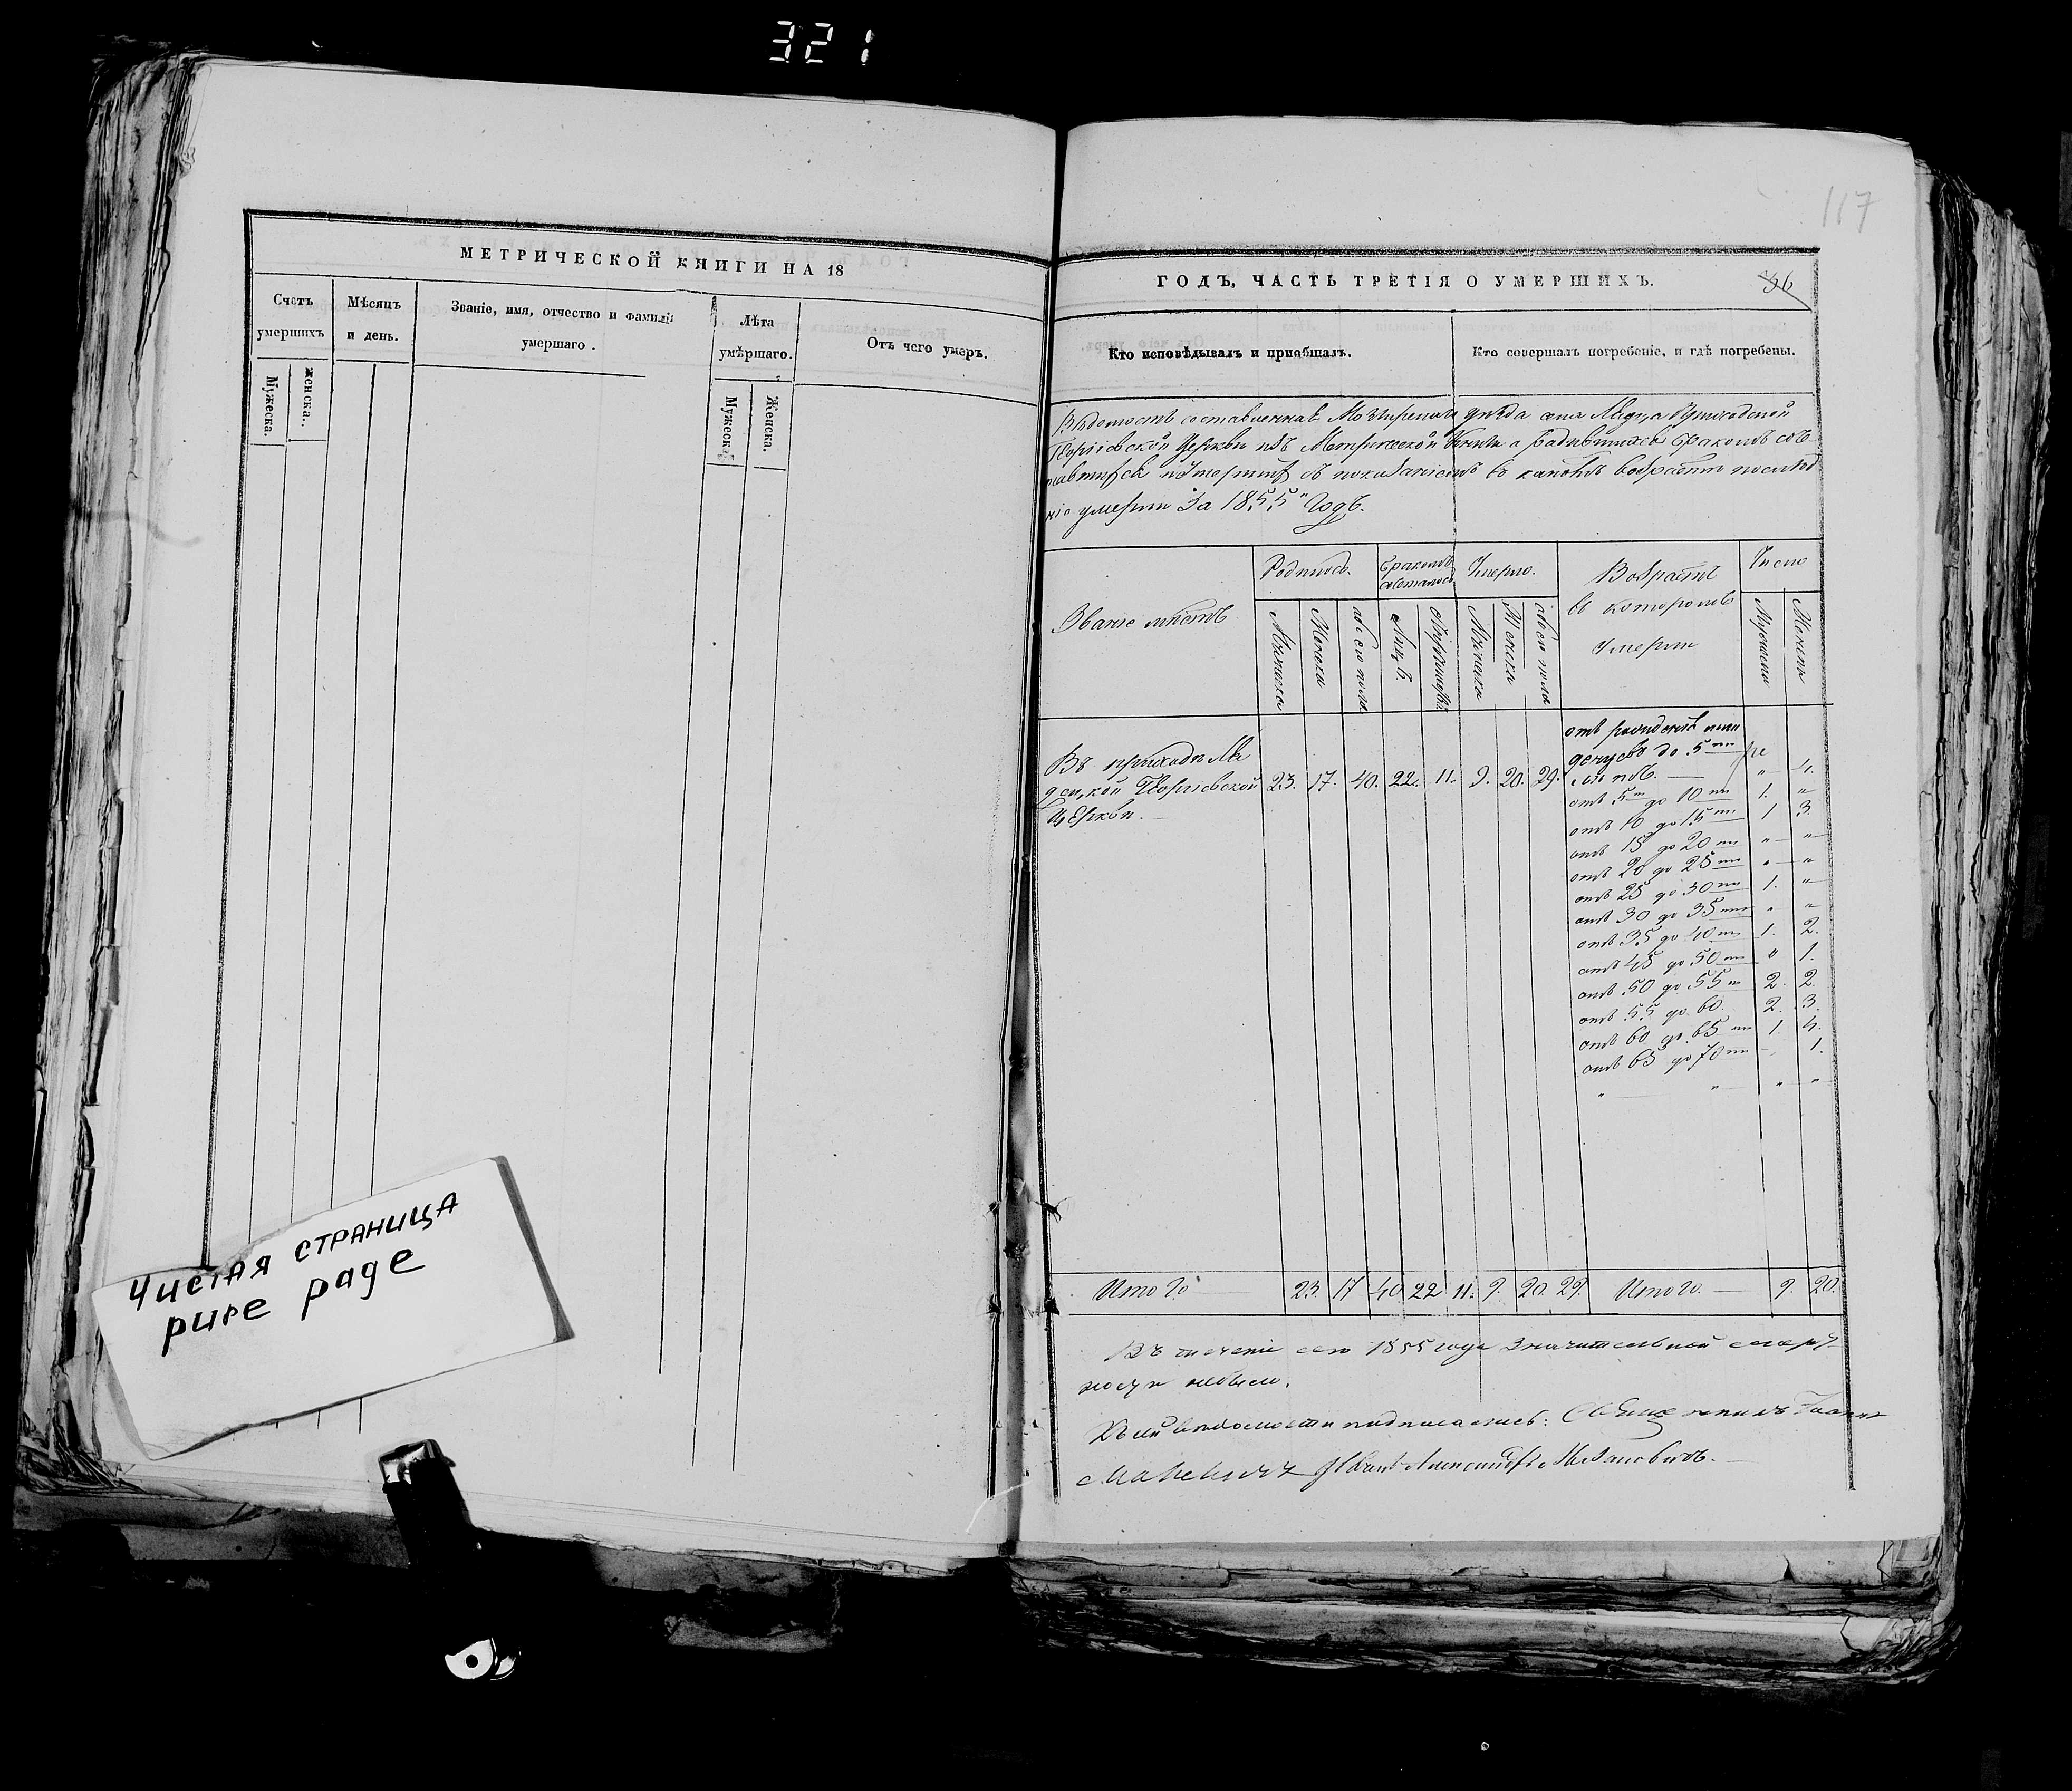 321
117
МЕТРИЧЕСКОЙ КНИГИ НА 18
Счетъ умершихъ
Мѣсяцъ и день.
Званіе, имя, отчество и фамилі
умершаго.
Лѣта умѣршаго.
Отъ чего умеръ.
Мужеска.
женска.
Мужеска
Женска.
Чистая страница
pure page
ГОДЪ, ЧАСТЬ ТРЕТІЯ О УМЕРШИХЪ.
36
Кто исповѣдывалъ и пріобщалъ.
Кто совершалъ погребеніе, и гдѣ погребены.
Вѣдомость составленная уѣзда села Приходской
Георгіевской Церкви изъ Метрической Книги о родившихся бракомъ соче
тавшихся и умершихъ съ показаніемъ въ какомъ возрастѣ послѣд
ніе умерли За 1855 Годъ.
Званіе мѣстъ
Родилось.
Бракомъ сочеталось
Умерло.
Возрастъ
въ которомъ
Умерли
Число
Мужеска
Женска
обоего пола
Лицъ.
Мужеска
Женска
обоего пола
Мужеска
Женска
Въ приходѣ
Георгіевской
Церкви.
23. 17. 40. 22. 11. 9. 20. 29.
отъ рожденія
до 5 ти
лѣтъ. — " 4.
отъ 5 ти до 10 ти 1. "
отъ 10 до 15 ти 1 3.
отъ 15 до 20 ти " "
отъ 20 до 25 ти " "
отъ 25 до 30 ти 1. "
отъ 30 до 35 ти " "
отъ 35 до 40 ти 1. 2.
отъ 45 до 50 ти " 1.
отъ 50 до 55 ти 2. 2.
отъ 55 до 60. 2. 3.
отъ 60 до 65 ти 1. 4.
отъ 65 до 70 ти - 1.
" " " "
Итого 23. 17 40 22 11. 9. 20. 29. Итого. — 9. 20.
Въ теченіе сего 1855 года значительной смерт-
ности небыло.
Къ сей вѣдомости подписались: Священникъ Іоаннъ
Александръ